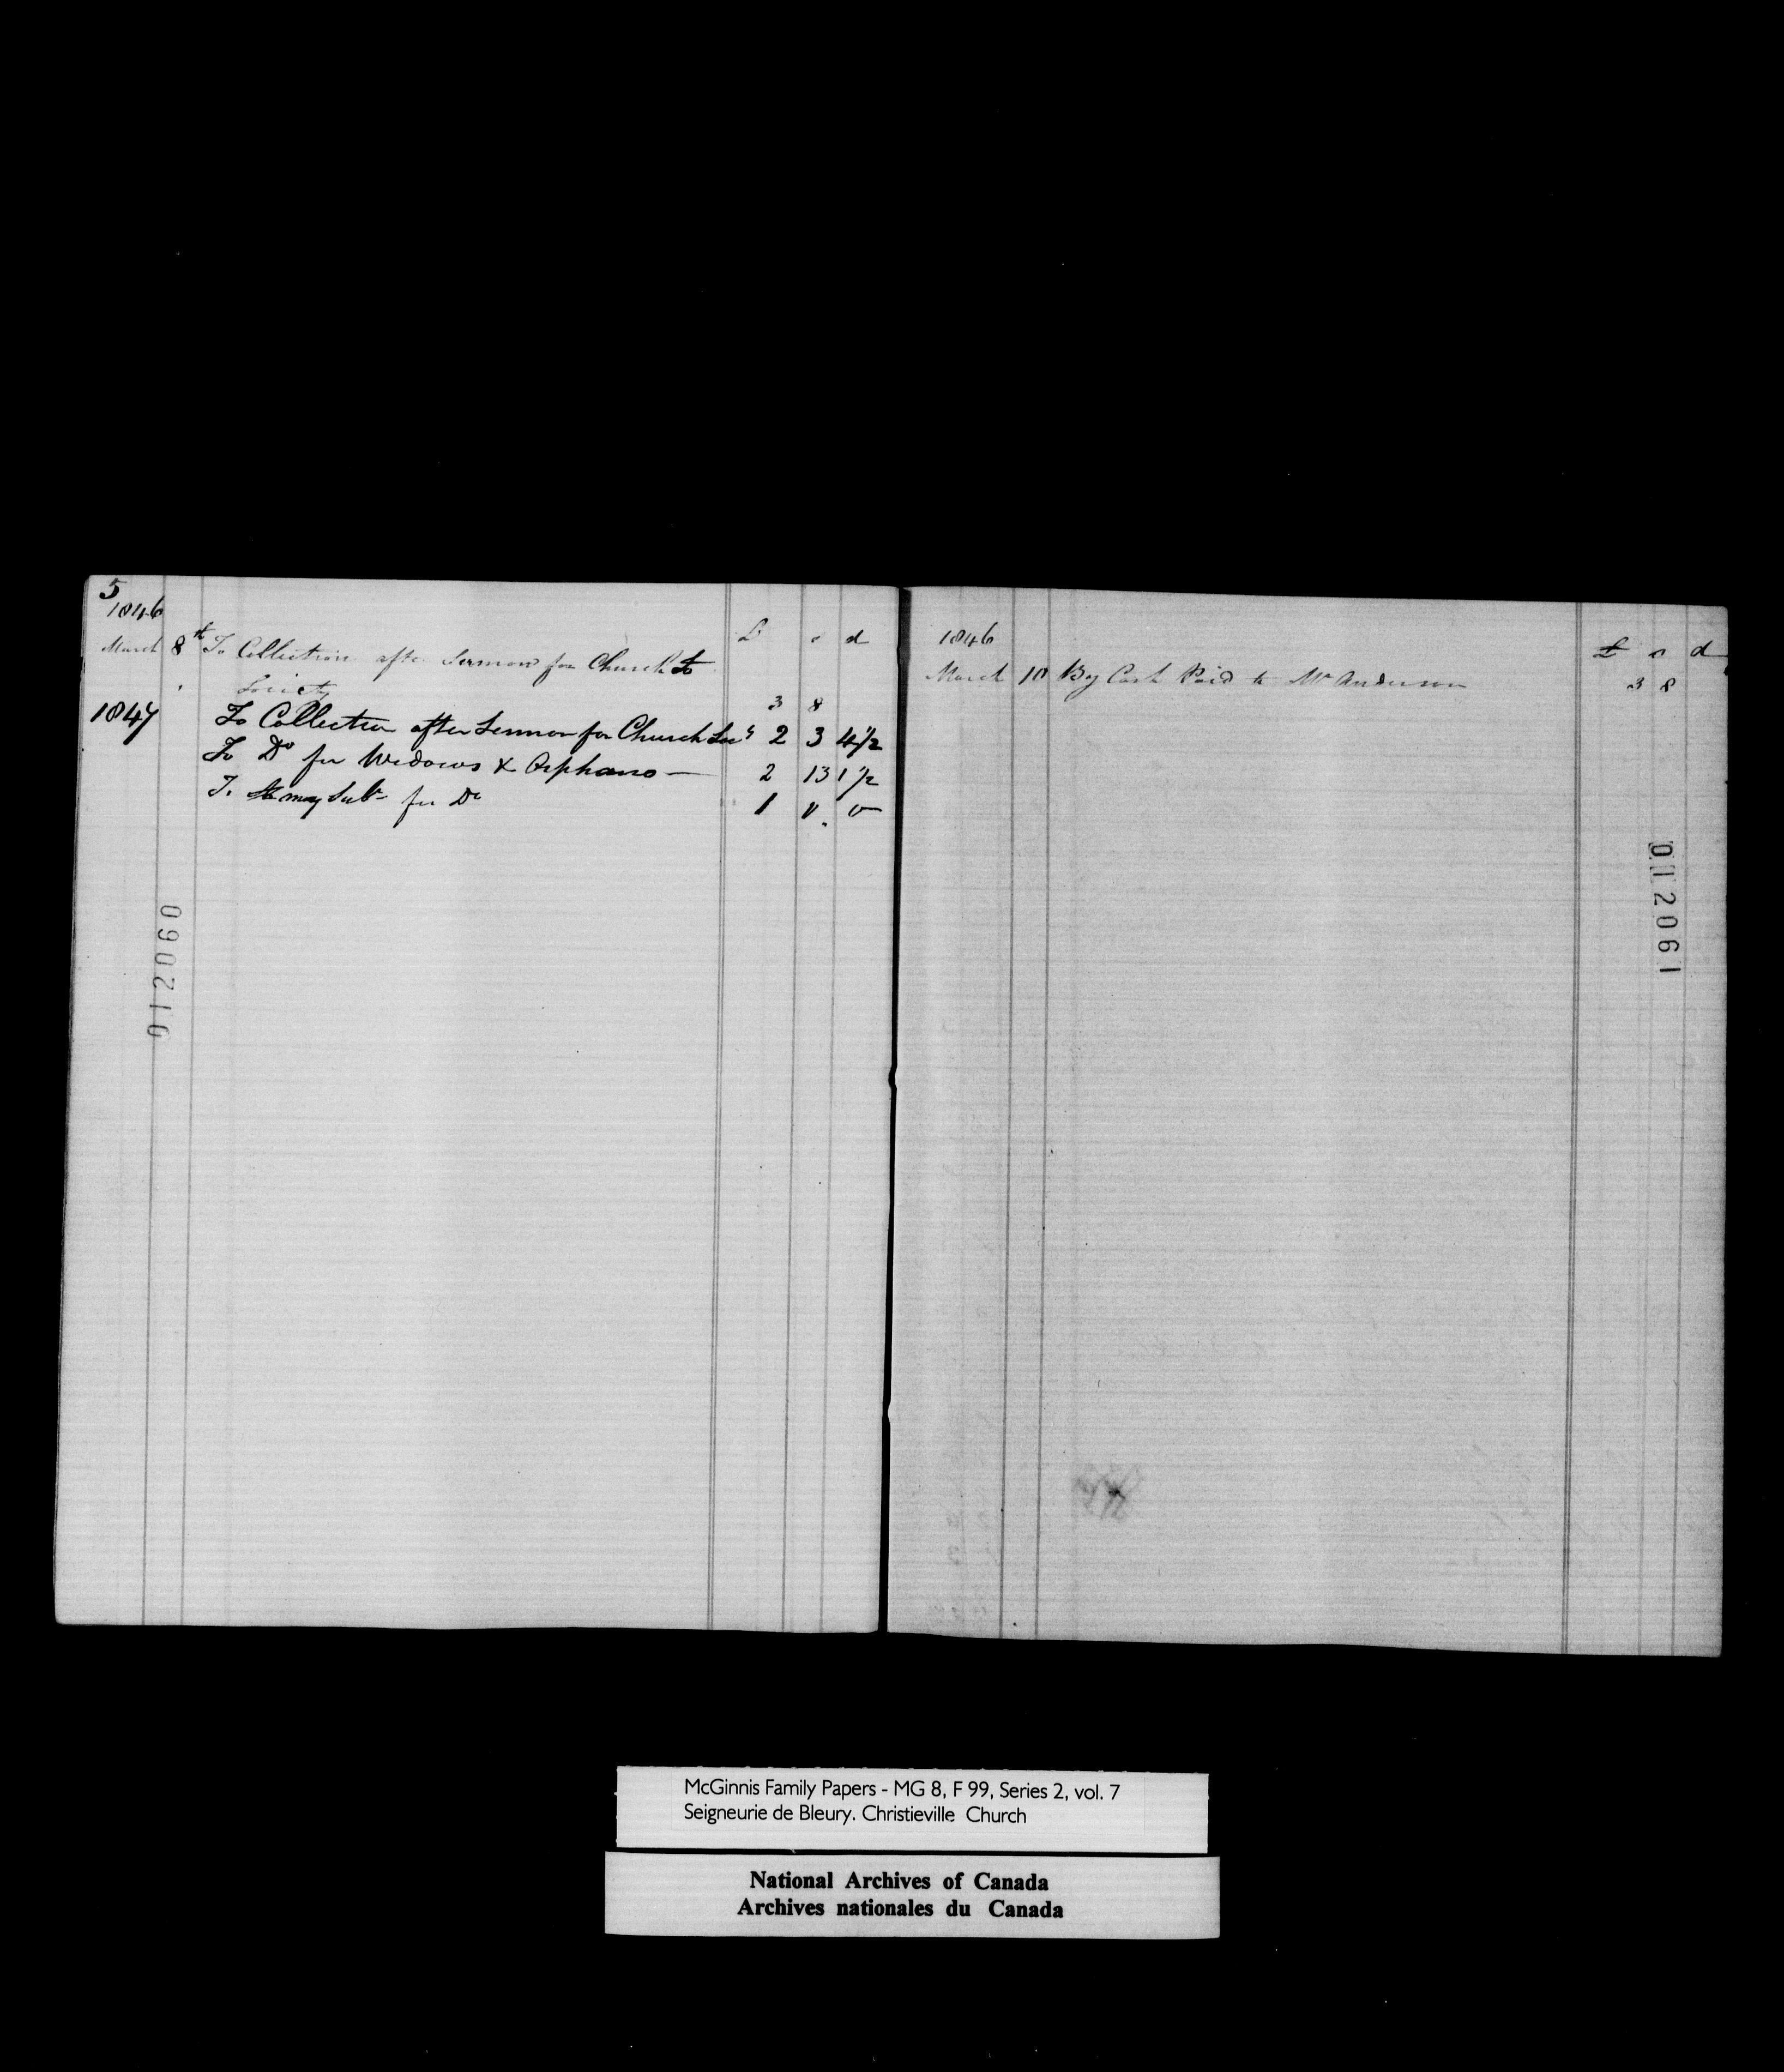 5
1846
£ s d
March 8th To Collection after Sermon for Church to
Society 3 8
1847 To Collection after Sermon for Church Socy 2 3 4½
To Do for Widows & Orphans — 2 13 1½
To my Subn for Do 1 0 0
012060
1846
£ s d
March 10 By Cash Paid to Mr Anderson 3 8
012061
McGinnis Family Papers - MG 8, F 99, Series 2, vol. 7
Seigneurie de Bleury. Christieville Church
National Archives of Canada
Archives nationales du Canada